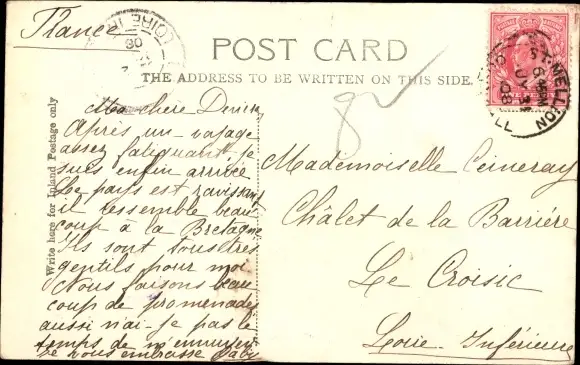 France
LOIRE IN
08
POST CARD
THE ADDRESS TO BE WRITTEN ON THIS SIDE.
ST. MELLION
6 45 PM
JY 31
08
Write here for Inland Postage only
Ma chère Denise
Après un voyage
assez fatiguant, je
suis enfin arrivée
Le pays est ravissant
il ressemble beau-
coup à la Bretagne
Ils sont tous très
gentils pour moi
Nous faisons beau
coup de promenades
aussi n'ai-je pas le
temps de m'ennuyer
Je vous embrasse Gaby
Mademoiselle Ceineray
Châlet de la Barrière
Le Croisic
Loire Inférieure